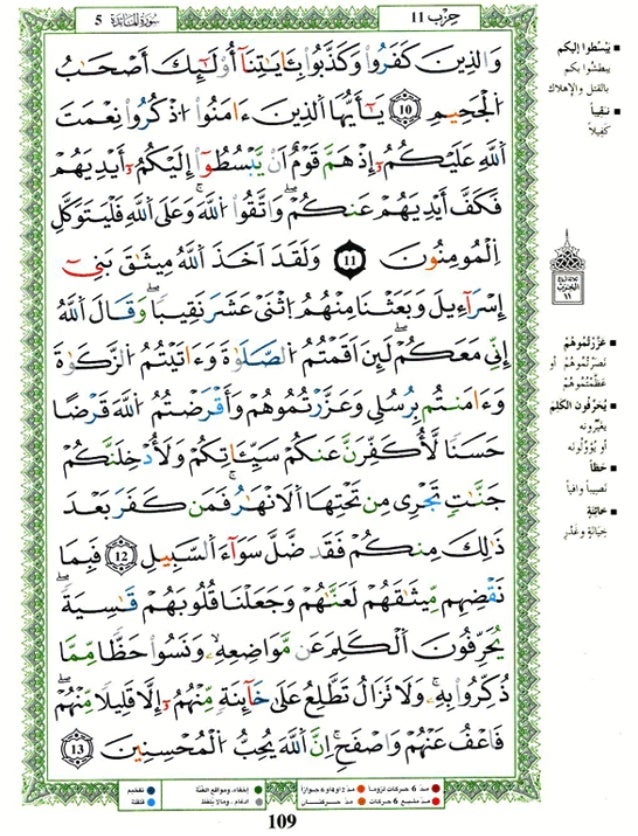 حِزْب 11
سُورَةُ المَائدَة 5
وَالذِينَ كَفَرُواْ وَكَذَّبُواْ بِـَٔايَٰتِنَآ أُوْلَٰٓئِكَ أَصْحَٰبُ
اُ۬لْجَحِيمِ 10 يَٰٓأَيُّهَا اَ۬لذِينَ ءَامَنُواْ اُ۟ذْكُرُواْ نِعْمَتَ
اَ۬للَّهِ عَلَيْكُمُۥٓ إِذْ هَمَّ قَوْمٌ اَنْ يَّبْسُطُوٓاْ إِلَيْكُمُۥٓ أَيْدِيَهُمْ
فَكَفَّ أَيْدِيَهُمْ عَنكُمْ وَاتَّقُواْ اُ۬للَّهَ وَعَلَى اَ۬للَّهِ فَلْيَتَوَكَّلِ
اِ۬لْمُومِنُونَ 11 وَلَقَدَ اَخَذَ اَ۬للَّهُ مِيثَٰقَ بَنِےٓ
إِسْرَآءِيلَ وَبَعَثْنَا مِنْهُمُ اُ۪ثْنَےْ عَشَرَ نَقِيباٗ وَقَالَ اَ۬للَّهُ
إِنِّے مَعَكُمْ لَئِنَ اَقَمْتُمُ اُ۬لصَّلَوٰةَ وَءَاتَيْتُمُ اُ۬لزَّكَوٰةَ
وَءَامَنتُم بِرُسُلِے وَعَزَّرْتُمُوهُمْ وَأَقْرَضْتُمُ اُ۬للَّهَ قَرْضاً
حَسَناٗ لَّأُكَفِّرَنَّ عَنكُمْ سَيِّـَٔاتِكُمْ وَلَأُدْخِلَنَّكُمْ
جَنَّٰتٖ تَجْرِے مِن تَحْتِهَا اَ۬لَانْهَٰرُ فَمَن كَفَرَ بَعْدَ
ذَٰلِكَ مِنكُمْ فَقَد ضَّلَّ سَوَآءَ اَ۬لسَّبِيلِ 12 فَبِمَا
نَقْضِهِم مِّيثَٰقَهُمْ لَعَنَّٰهُمْ وَجَعَلْنَا قُلُوبَهُمْ قَٰسِيَةٗ
يُحَرِّفُونَ اَ۬لْكَلِمَ عَن مَّوَاضِعِهِۦ وَنَسُواْ حَظّاٗ مِّمَّا
ذُكِّرُواْ بِهِۦ وَلَا تَزَالُ تَطَّلِعُ عَلَىٰ خَآئِنَةٖ مِّنْهُمُۥٓ إِلَّا قَلِيلاٗ مِّنْهُمْ
فَاعْفُ عَنْهُمْ وَاصْفَحِ اِنَّ اَ۬للَّهَ يُحِبُّ اُ۬لْمُحْسِنِينَ 13
يَبْسُطوا إليكم
يبطشوا بكم
بالقتل والإهلاك
نَقيباً
كَفيلاً
الحزب
١١
عَزَّرْتُمُوهُمْ
نَصَرْتُمُوهُمْ أو
عَظَّمْتُمُوهُمْ
يُحَرِّفُون الكَلِمَ
يغيِّرونه
أو يُؤوّلُونه
حَظاً
نَصِيباً وافياً
خائنةٍ
خِيَانَةٍ وغَدْرٍ
مدّ 6 حركات لزوماً
مدّ 2 أو 4 أو 6 جوازاً
إخفاء، ومواقع الغُنَّة
تفخيم
مدّ مشبع 6 حركات
مدّ حركتـــان
ادغام، ومالا يلفظ
قلقلة
109